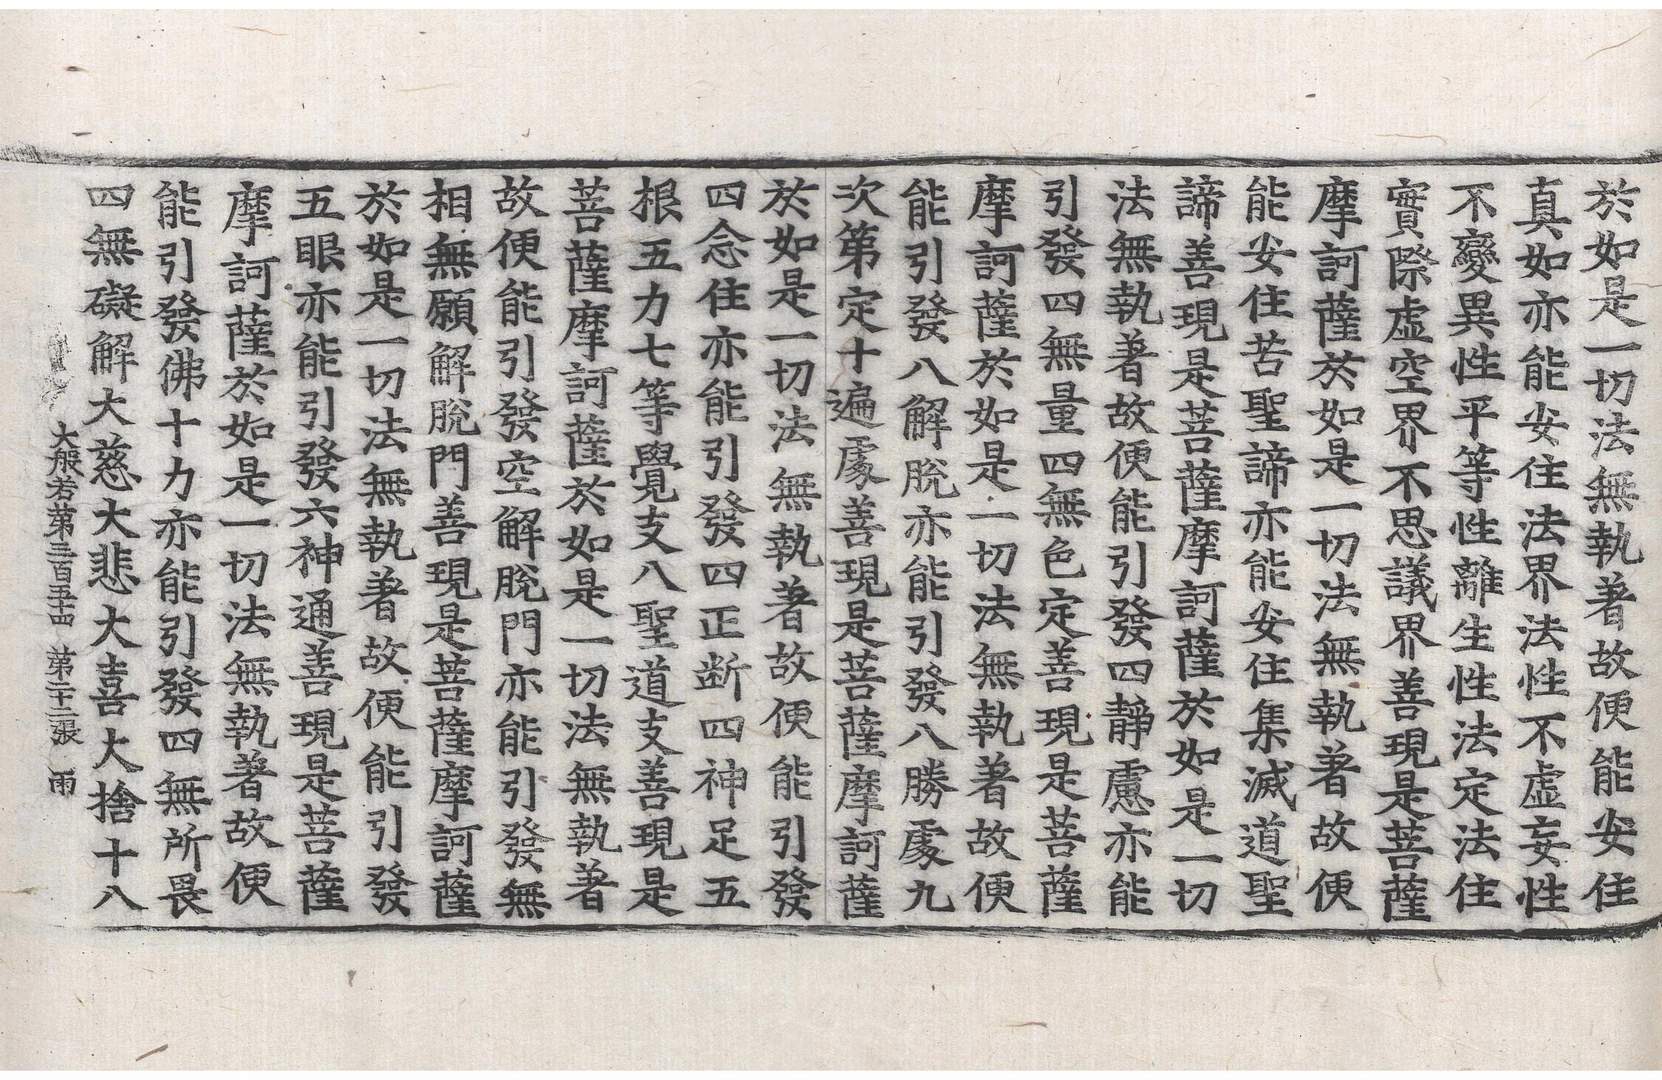 於如是一切法無執著故便能安住
真如亦能安住法界法性不虛妄性
不變異性平等性離生性法定法住
實際虛空界不思議界善現是菩薩
摩訶薩於如是一切法無執著故便
能安住苦聖諦亦能安住集滅道聖
諦善現是菩薩摩訶薩於如是一切
法無執著故便能引發四靜慮亦能
引發四無量四無色定善現是菩薩
摩訶薩於如是一切法無執著故便
能引發八解脫亦能引發八勝處九
次第定十遍處善現是菩薩摩訶薩
於如是一切法無執著故便能引發
四念住亦能引發四正断四神足五
根五力七等覺支八聖道支善現是
菩薩摩訶薩於如是一切法無執著
故便能引發空解脫門亦能引發無
相無願解脫門善現是菩薩摩訶薩
於如是一切法無執著故便能引發
五眼亦能引發六神通善現是菩薩
摩訶薩於如是一切法無執著故便
能引發佛十力亦能引發四無所畏
四無礙解大慈大悲大喜大捨十八
大般若第三百五十四 第二十二張 雨